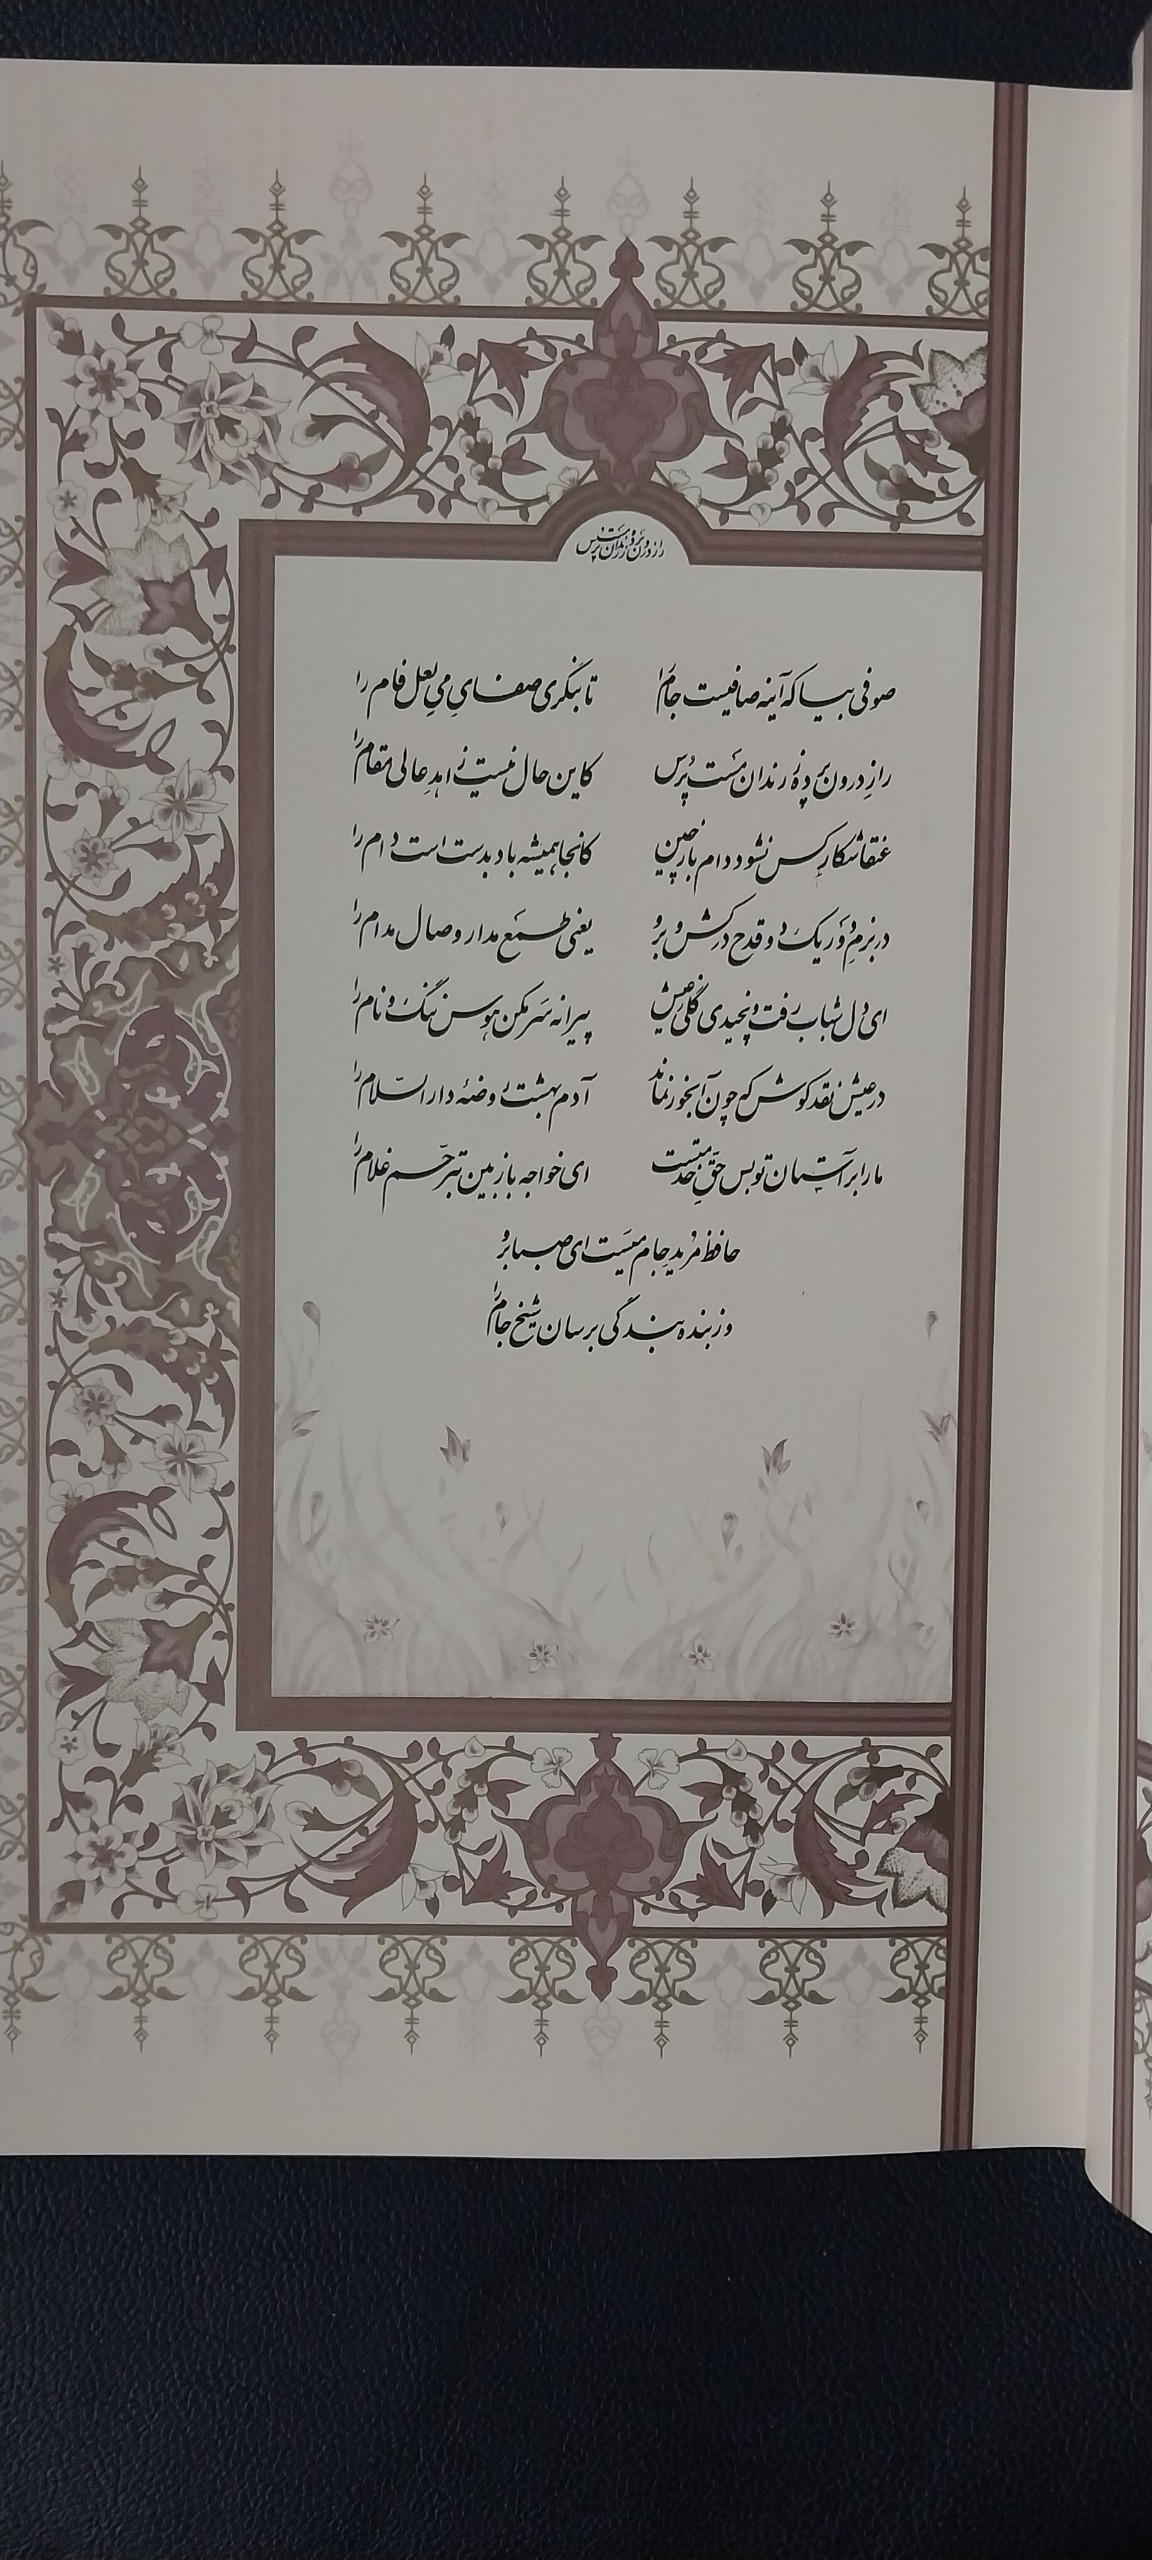 راز درون پرده ز رندان مست پرس
صوفی بیا که آینه صافیست جام را تا بنگری صفای می لعل فام را
راز درون پرده ز رندان مست پرس کاین حال نیست زاهد عالی مقام را
عنقا شکار کس نشود دام باز چین کانجا همیشه باد بدست است دام را
در بزم دور یک دو قدح در کش و برو یعنی طمع مدار وصال مدام را
ای دل شباب رفت و نچیدی گلی ز عیش پیرانه سر مکن هوس ننگ و نام را
در عیش نقد کوش که چون آبخور نماند آدم بهشت روضه دار السلام را
ما را بر آستان تو بس حق خدمتست ای خواجه باز بین به ترحم غلام را
حافظ مرید جام میست ای صبا برو
وز بنده بندگی برسان شیخ جام را